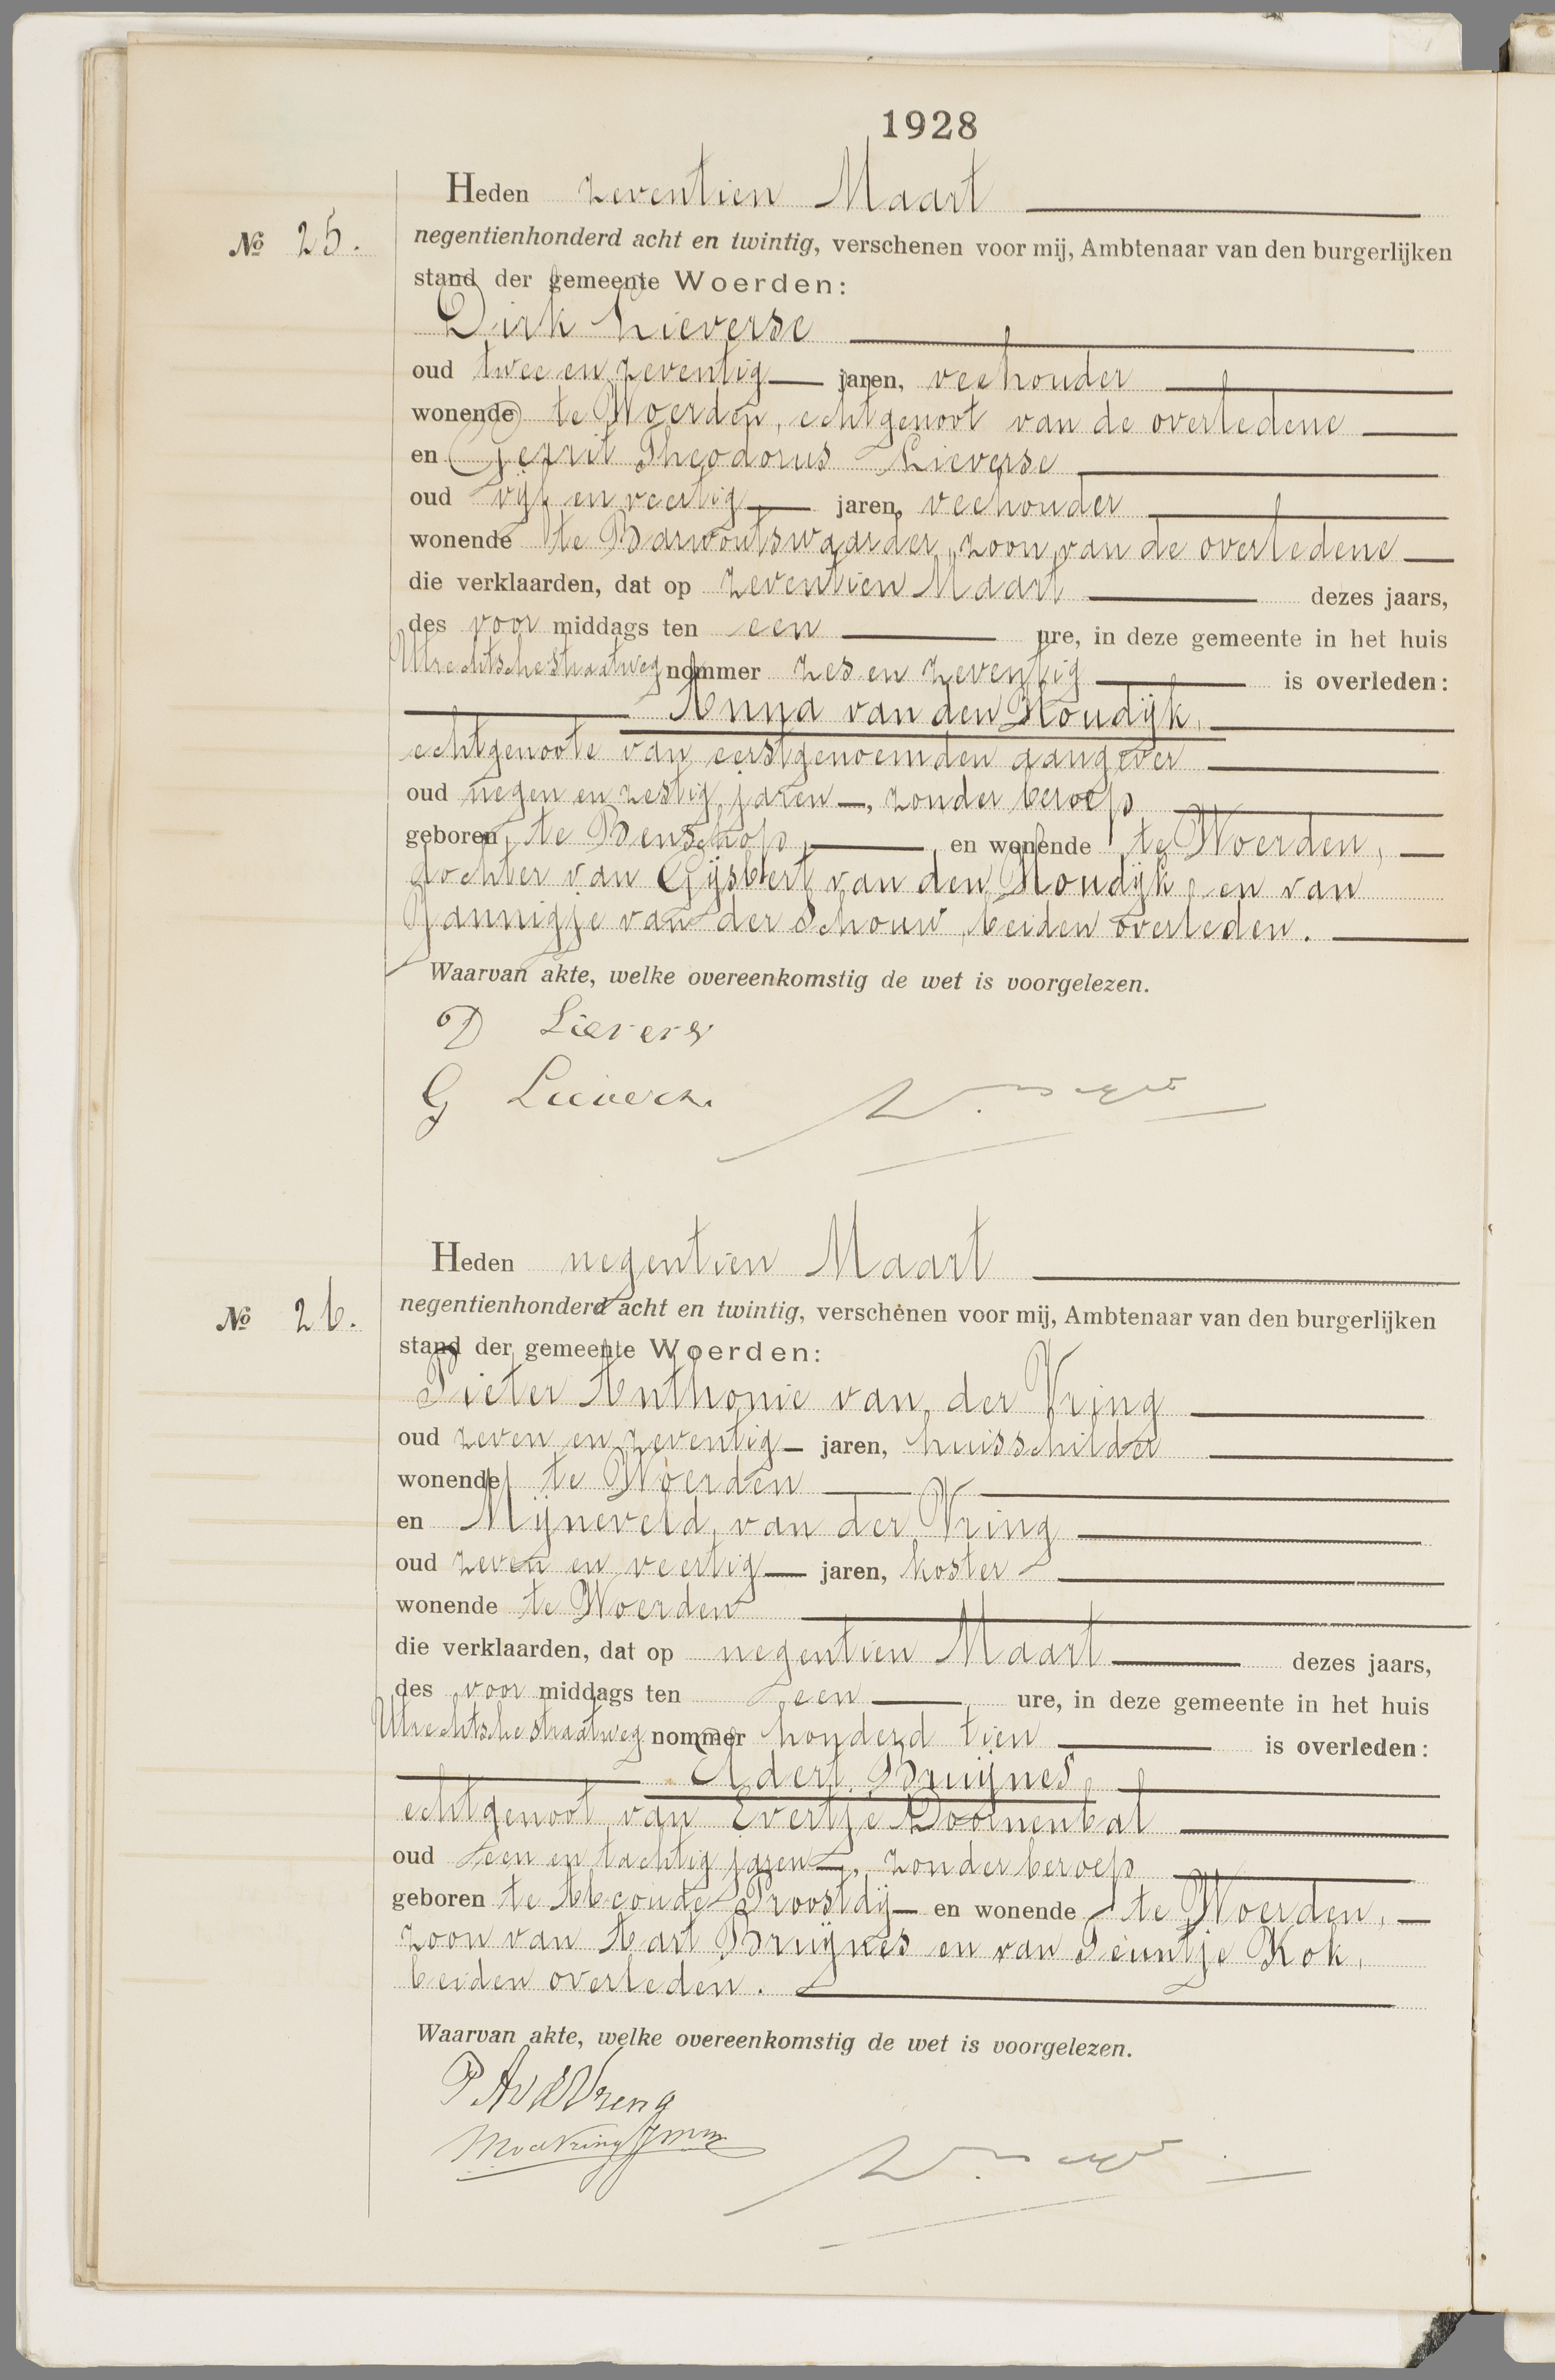 1928
Heden zeventien Maart
No 25.
negentienhonderd acht en twintig, verschenen voor mij, Ambtenaar van den burgerlijken
stand der gemeente Woerden:
Dirk Lieverse
oud twee en zeventig jaren, veehouder
wonende te Woerden, echtgenoot van de overledene
en Gerrit Theodorus Lieverse
oud vijf en veertig jaren, veehouder
wonende te Barwoutswaarder, zoon van de overledene
die verklaarden, dat op zeventien Maart dezes jaars,
des voor middags ten een ure, in deze gemeente in het huis
Utrechtschestraatweg nommer zes en zeventig is overleden:
Anna van den Houdijk,
echtgenoote van eerstgenoemden aangever
oud negen en zestig jaren, zonder beroep
geboren te Benschop, en wonende te Woerden,
dochter van Gijsbert van den Houdijk en van
Jannigje van der Schouw, beiden overleden.
Waarvan akte, welke overeenkomstig de wet is voorgelezen.
D Lieverse
G Lieverse
Heden negentien Maart
No 26.
negentienhonderd acht en twintig, verschenen voor mij, Ambtenaar van den burgerlijken
stand der gemeente Woerden:
Pieter Anthonie van der Vring
oud zeven en zeventig jaren, huisschilder
wonende te Woerden
en Mijneveld van der Vring
oud zeven en veertig jaren, koster
wonende te Woerden
die verklaarden, dat op negentien Maart dezes jaars,
des voor middags ten een ure, in deze gemeente in het huis
Utrechtschestraatweg nommer honderd tien is overleden:
Eldert Bruijnes,
echtgenoot van Evertje Doornenbal
oud een en tachtig jaren, zonder beroep
geboren te Abcoude-Proostdij en wonende te Woerden,
zoon van Aart Bruijnes en van Teuntje Kok,
beiden overleden.
Waarvan akte, welke overeenkomstig de wet is voorgelezen.
P A v d Vring
M v d Vring